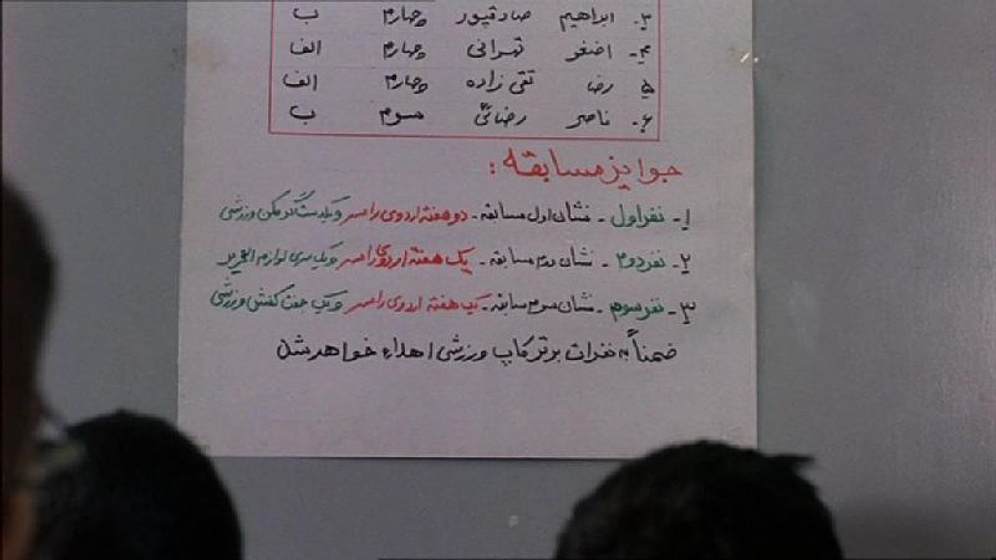 ۳- ابراهیم صادقپور چهارم ب
۴- اصغر تهرانی چهارم الف
۵ رضا تقی زاده چهارم الف
۶- ناصر رضائی سوم ب
جوایز مسابقه :
۱- نفر اول - نشان اول مسابقه - دو هفته اردوی رامسر و یکدست گرمکن ورزشی
۲- نفر دوم - نشان دوم مسابقه - یک هفته اردوی رامسر و یک سری لوازم التحریر
۳- نفر سوم - نشان سوم مسابقه - یک هفته اردوی رامسر و یک جفت کفش ورزشی
ضمناً به نفرات برتر کاپ ورزشی اهداء خواهد شد